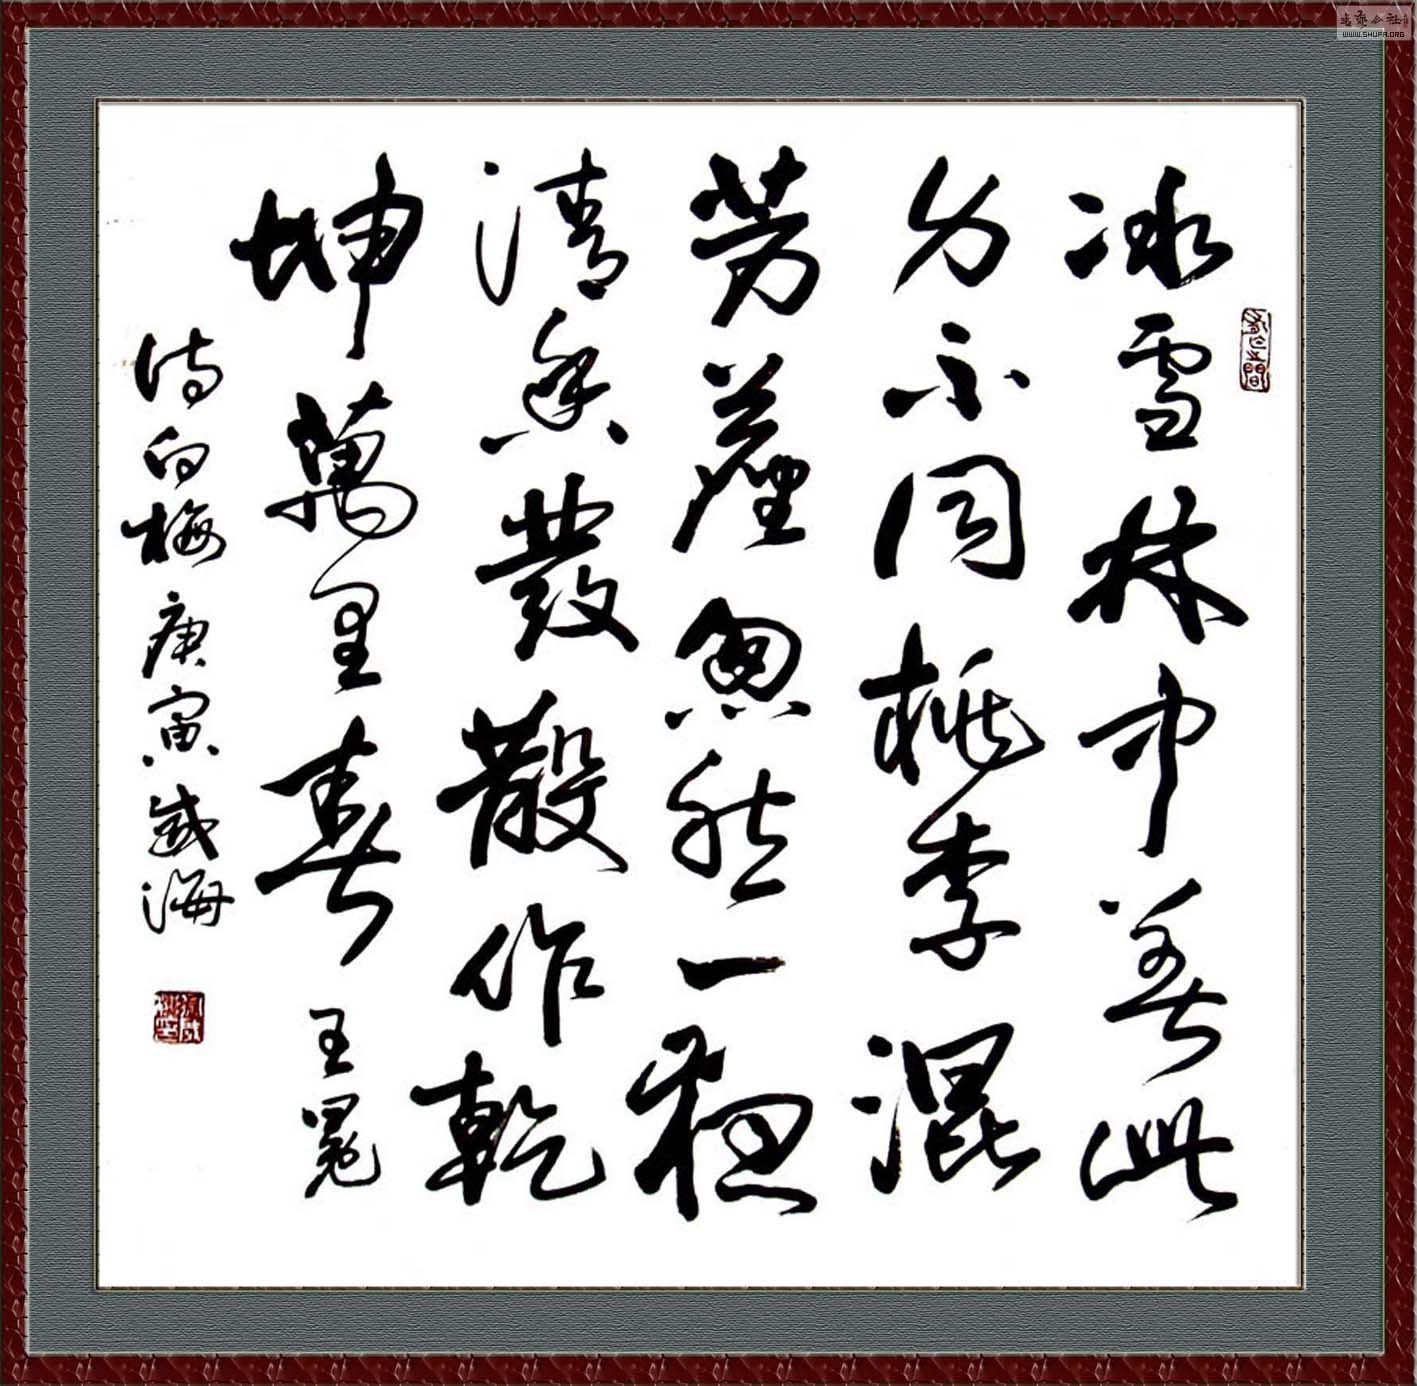 冰雪林中著此
身不同桃李混
芳塵忽然一夜
清香發散作乾
坤萬里春 王冕
詩白梅庚寅威海
公社
WWW.SHUFA.ORG